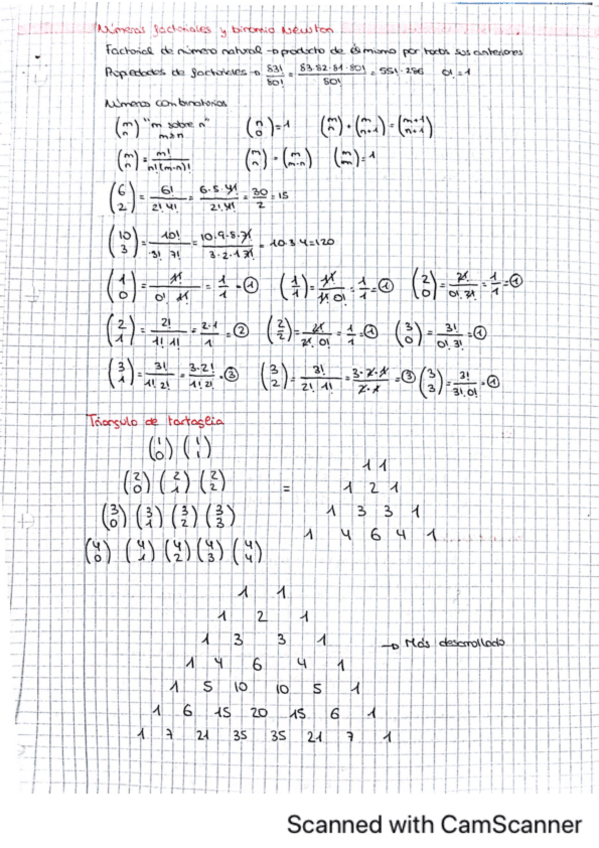 Números factoriales y binomio Newton
Factorial de número natural → producto de él mismo por todos sus anteriores
Propiedades de factoriales → 83!/80! = 83·82·81·80!/80! = 551·286 0! = 1
Números combinatorios
(m n) "m sobre n" (n 0) = 1 (m n) + (m n+1) = (m+1 n+1)
m≥n
(m n) = m!/n!(m-n)! (m n) = (m m-n) (m m) = 1
(6 2) = 6!/2! 4! = 6·5·4!/2! 4! = 30/2 = 15
(10 3) = 10!/3! 7! = 10·9·8·7!/3·2·1 7! = 10·3·4 = 120
(1 0) = 1!/0! 1! = 1/1 = 1 (1 1) = 1!/1! 0! = 1/1 = 1 (2 0) = 2!/0! 2! = 1/1 = 1
(2 1) = 2!/1! 1! = 2·1/1 = 2 (2 2) = 2!/2! 0! = 1/1 = 1 (3 0) = 3!/0! 3! = 1
(3 1) = 3!/1! 2! = 3·2!/1! 2! = 3 (3 2) = 3!/2! 1! = 3·2·1/2·1 = 3 (3 3) = 3!/3! 0! = 1
Triángulo de tartaglia
(1 0) (1 1)
(2 0) (2 1) (2 2)
(3 0) (3 1) (3 2) (3 3)
(4 0) (4 1) (4 2) (4 3) (4 4)
=
1 1
1 2 1
1 3 3 1
1 4 6 4 1
1 1
1 2 1
1 3 3 1 → Más desarrollado
1 4 6 4 1
1 5 10 10 5 1
1 6 15 20 15 6 1
1 7 21 35 35 21 7 1
Scanned with CamScanner